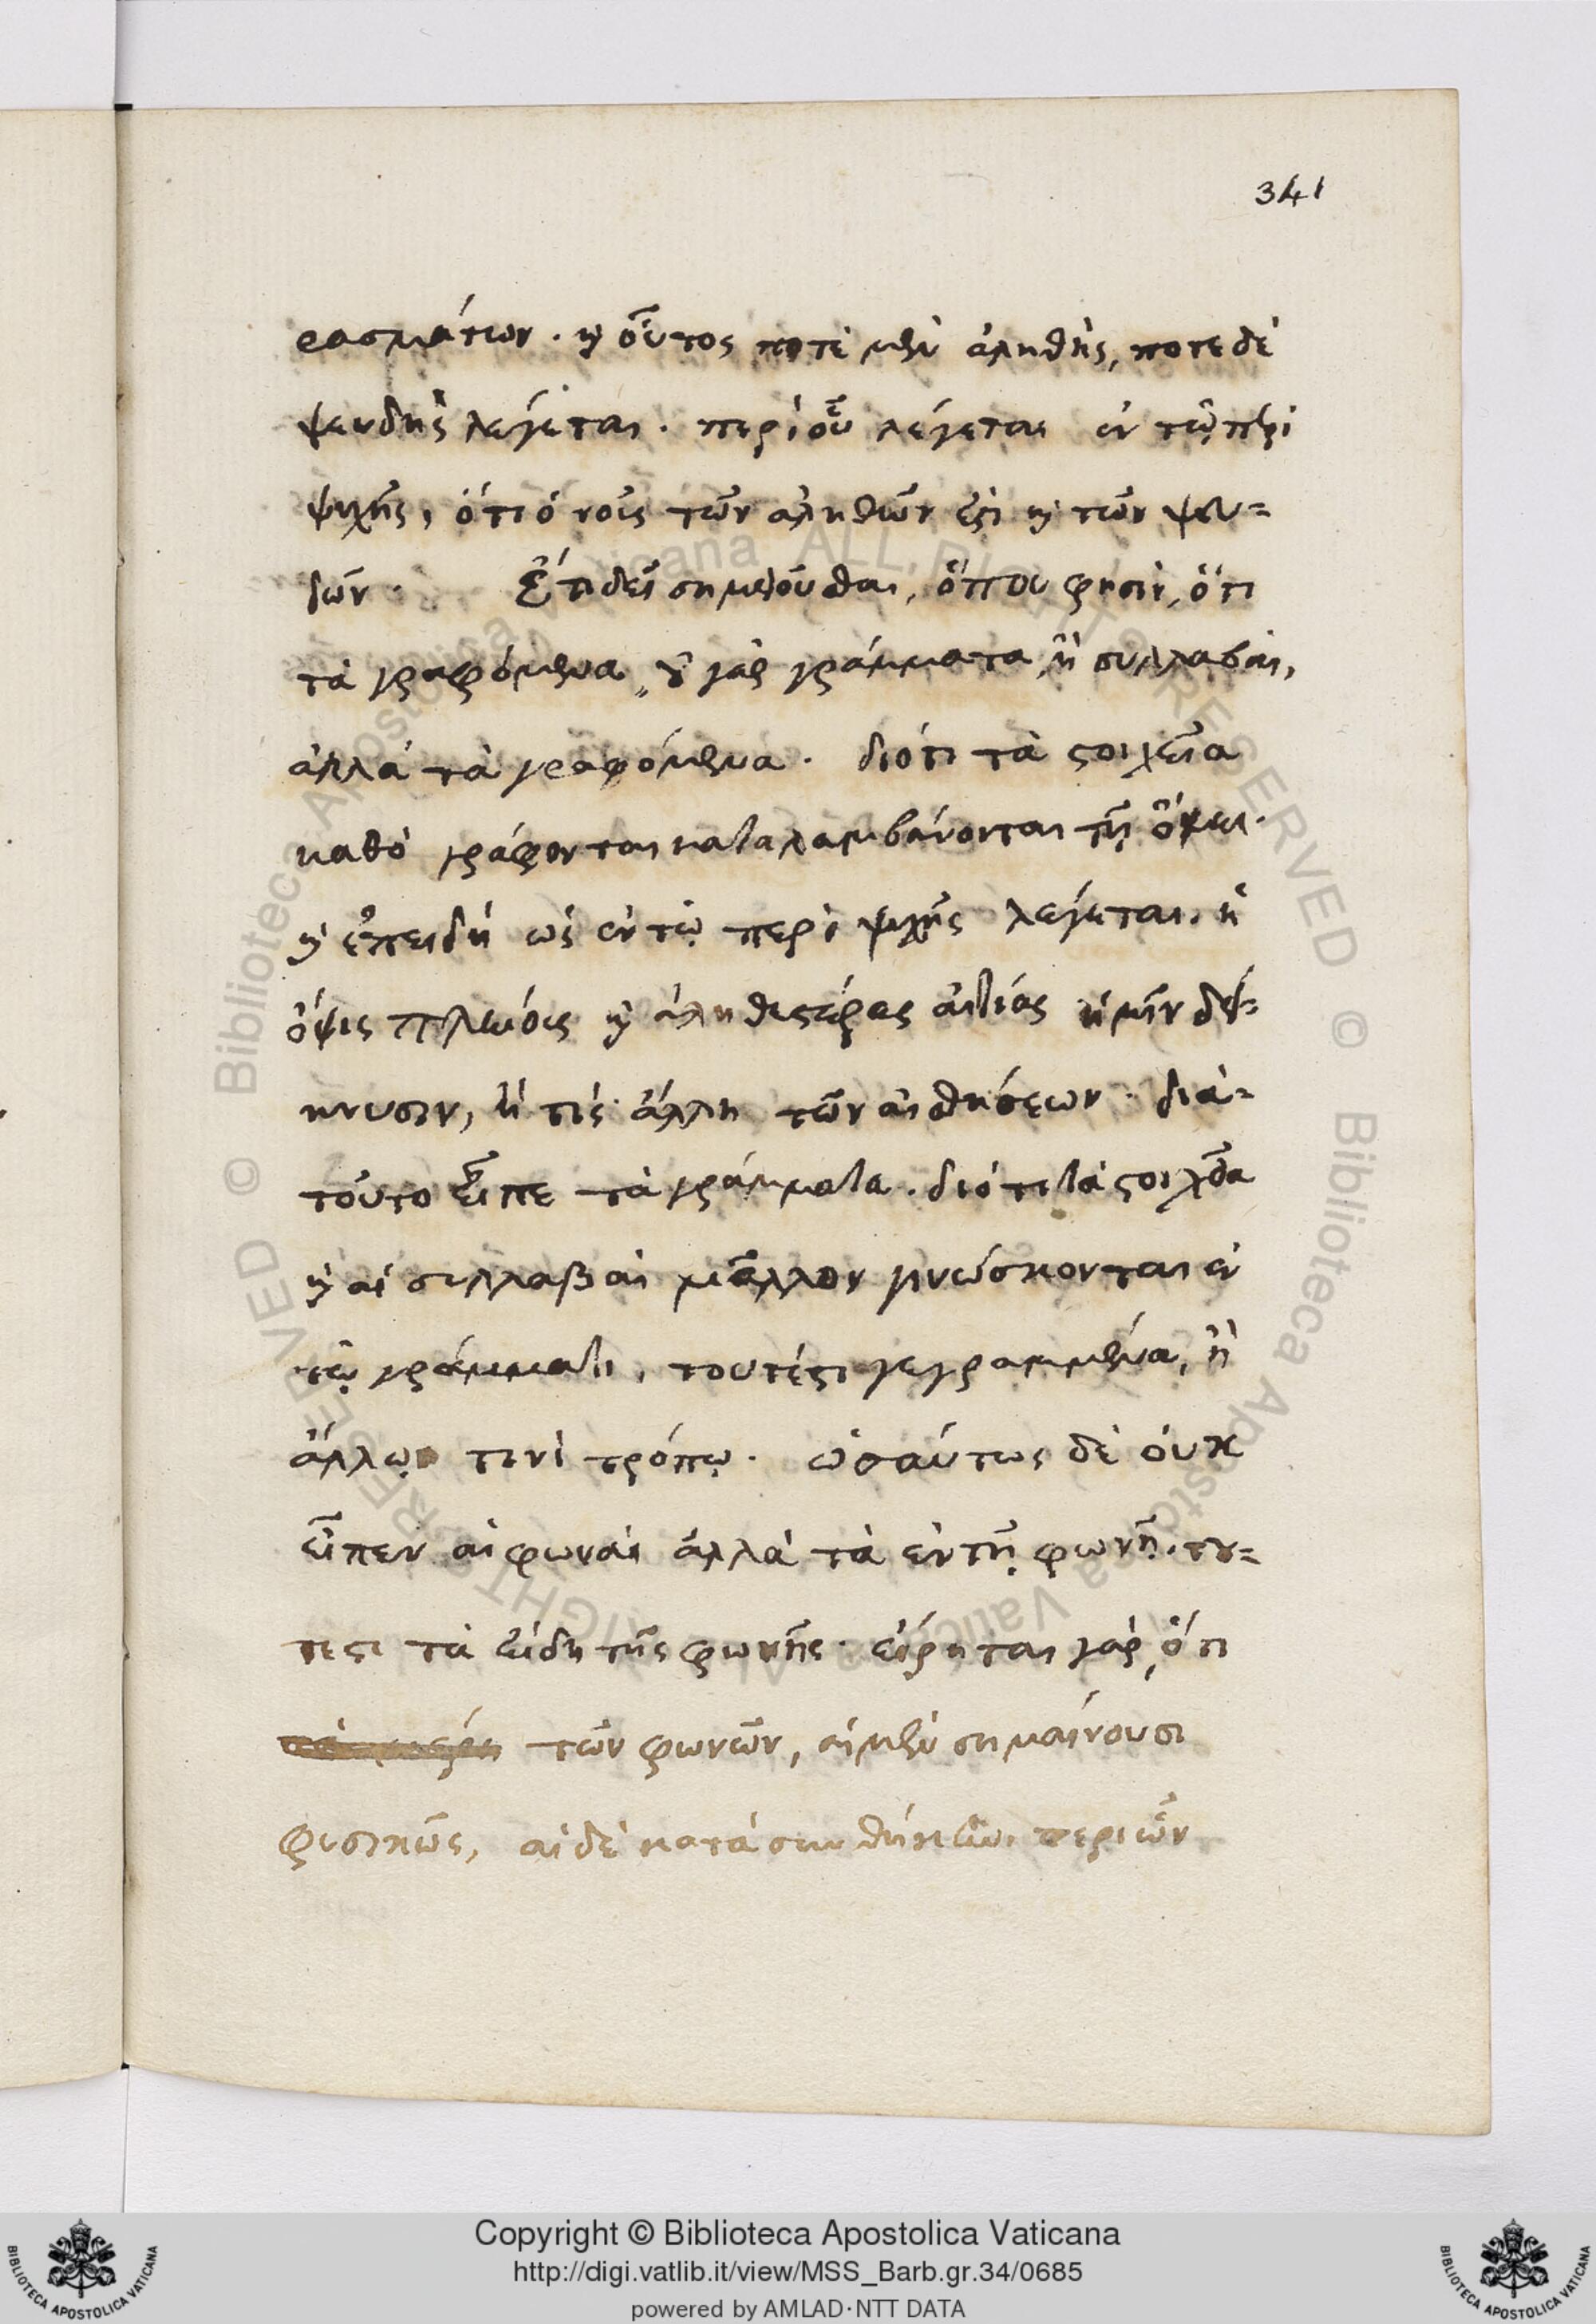 341
ρασμάτων. καὶ οὗτος ποτὲ μὲν ἀληθὴς, ποτε δὲ
ψευδὴς λέγεται. περὶ οὗ λέγεται ἐν τῷ περὶ
ψυχῆς, ὅτι ὁ νοῦς τῶν ἀληθῶν ἐστι καὶ τῶν ψευ=
δῶν. Ἔτι δεῖ σημειοῦσθαι, ὅπου φησὶν, ὅτι
τὰ γραφόμενα, οὐ γὰρ γράμματα, ἢ συλλαβαὶ,
ἀλλὰ τὰ γραφόμενα. διότι τὰ στοιχεῖα
καθὸ γράφονται καταλαμβάνονται τῇ ὄψει.
καὶ ἐπειδὴ ὡς ἐν τῷ περὶ ψυχῆς λέγεται. ἡ
ὄψις πλείους καὶ ἀληθεστέρας αἰτίας ἡμῖν δεί=
κνυσιν, ἢ τὶς ἄλλη τῶν αἰσθήσεων. διὰ=
τοῦτο εἶπε τὰ γράμματα. διότι τὰ στοιχεῖα
καὶ αἱ συλλαβαὶ μᾶλλον γινώσκονται ἐν
τῷ γράμματι, τουτέστι γεγραμμένα, ἢ
ἄλλῳ τινὶ τρόπῳ. ὡσαύτως δὲ οὐκ
εἶπεν αἱ φωναὶ ἀλλὰ τὰ ἐν τῇ φωνῇ. του=
τεστι τὰ εἴδη τῆς φωνῆς. εἴρηται γὰρ, ὅτι
τῶν φωνῶν, αἱ μὲν σημαίνουσι
φυσικῶς, αἱ δὲ κατὰ συνθήκην. περι ὧν
Copyright © Biblioteca Apostolica Vaticana
http://digi.vatlib.it/view/MSS_Barb.gr.34/0685
powered by AMLAD·NTT DATA